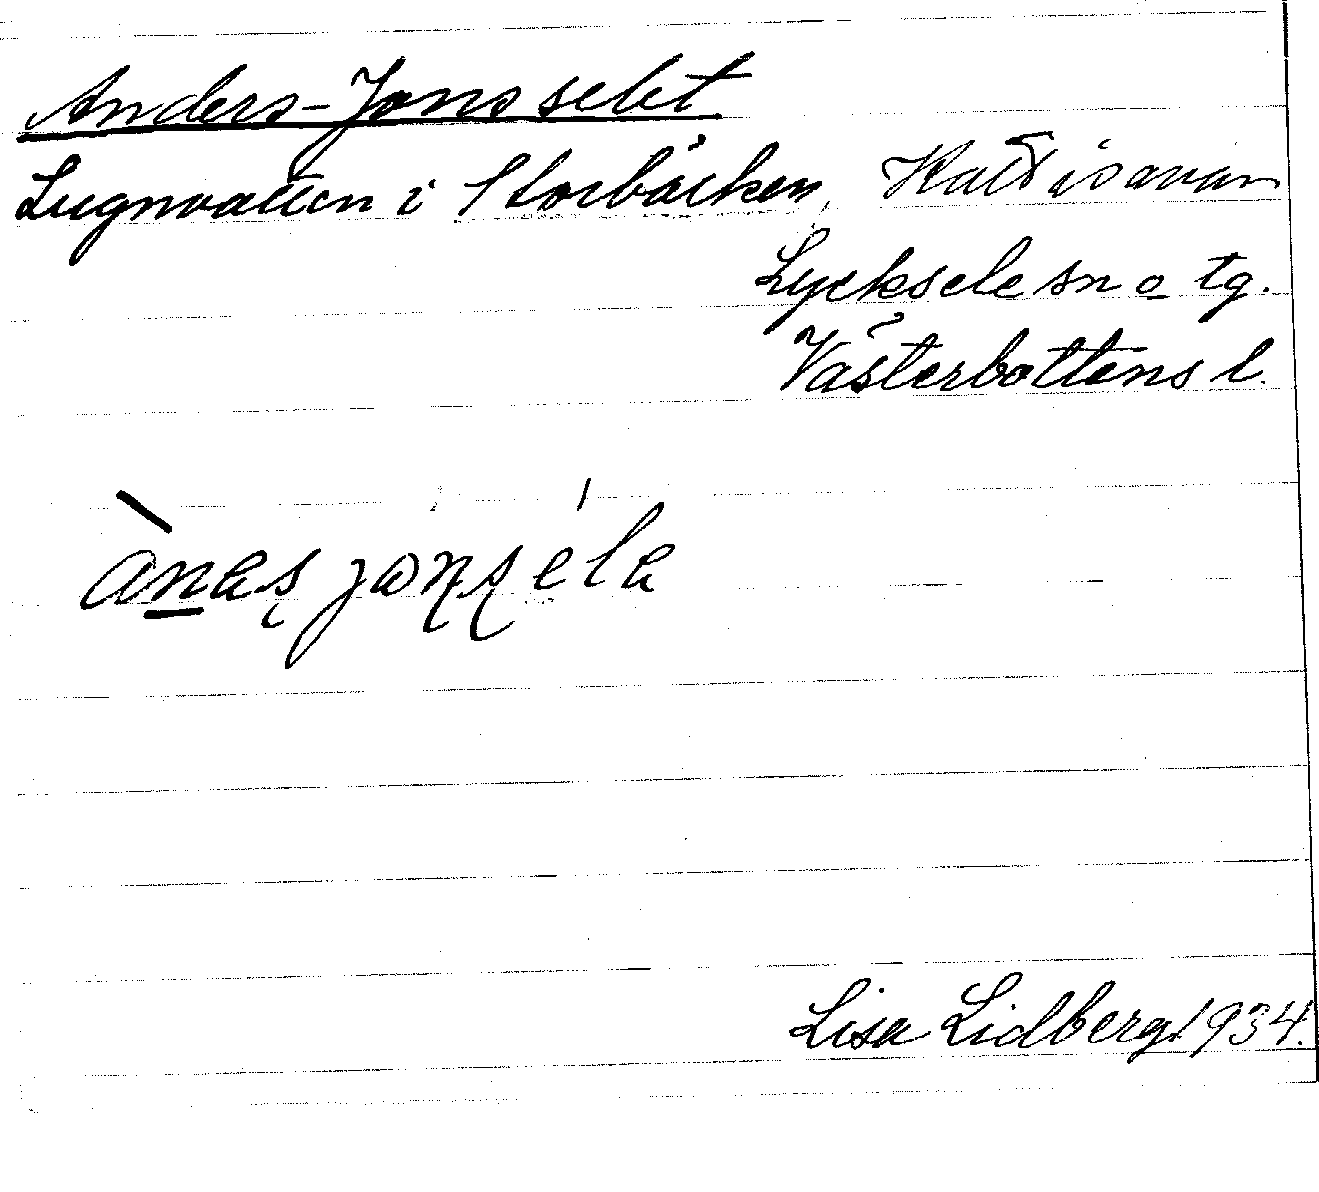 Anders-Jonsselet
Lugnvatten i Storbäcken, Kattisavan
Lycksele sn o tg.
Västerbottens l.
ànas jonséla
Lisa Lidberg 1934.